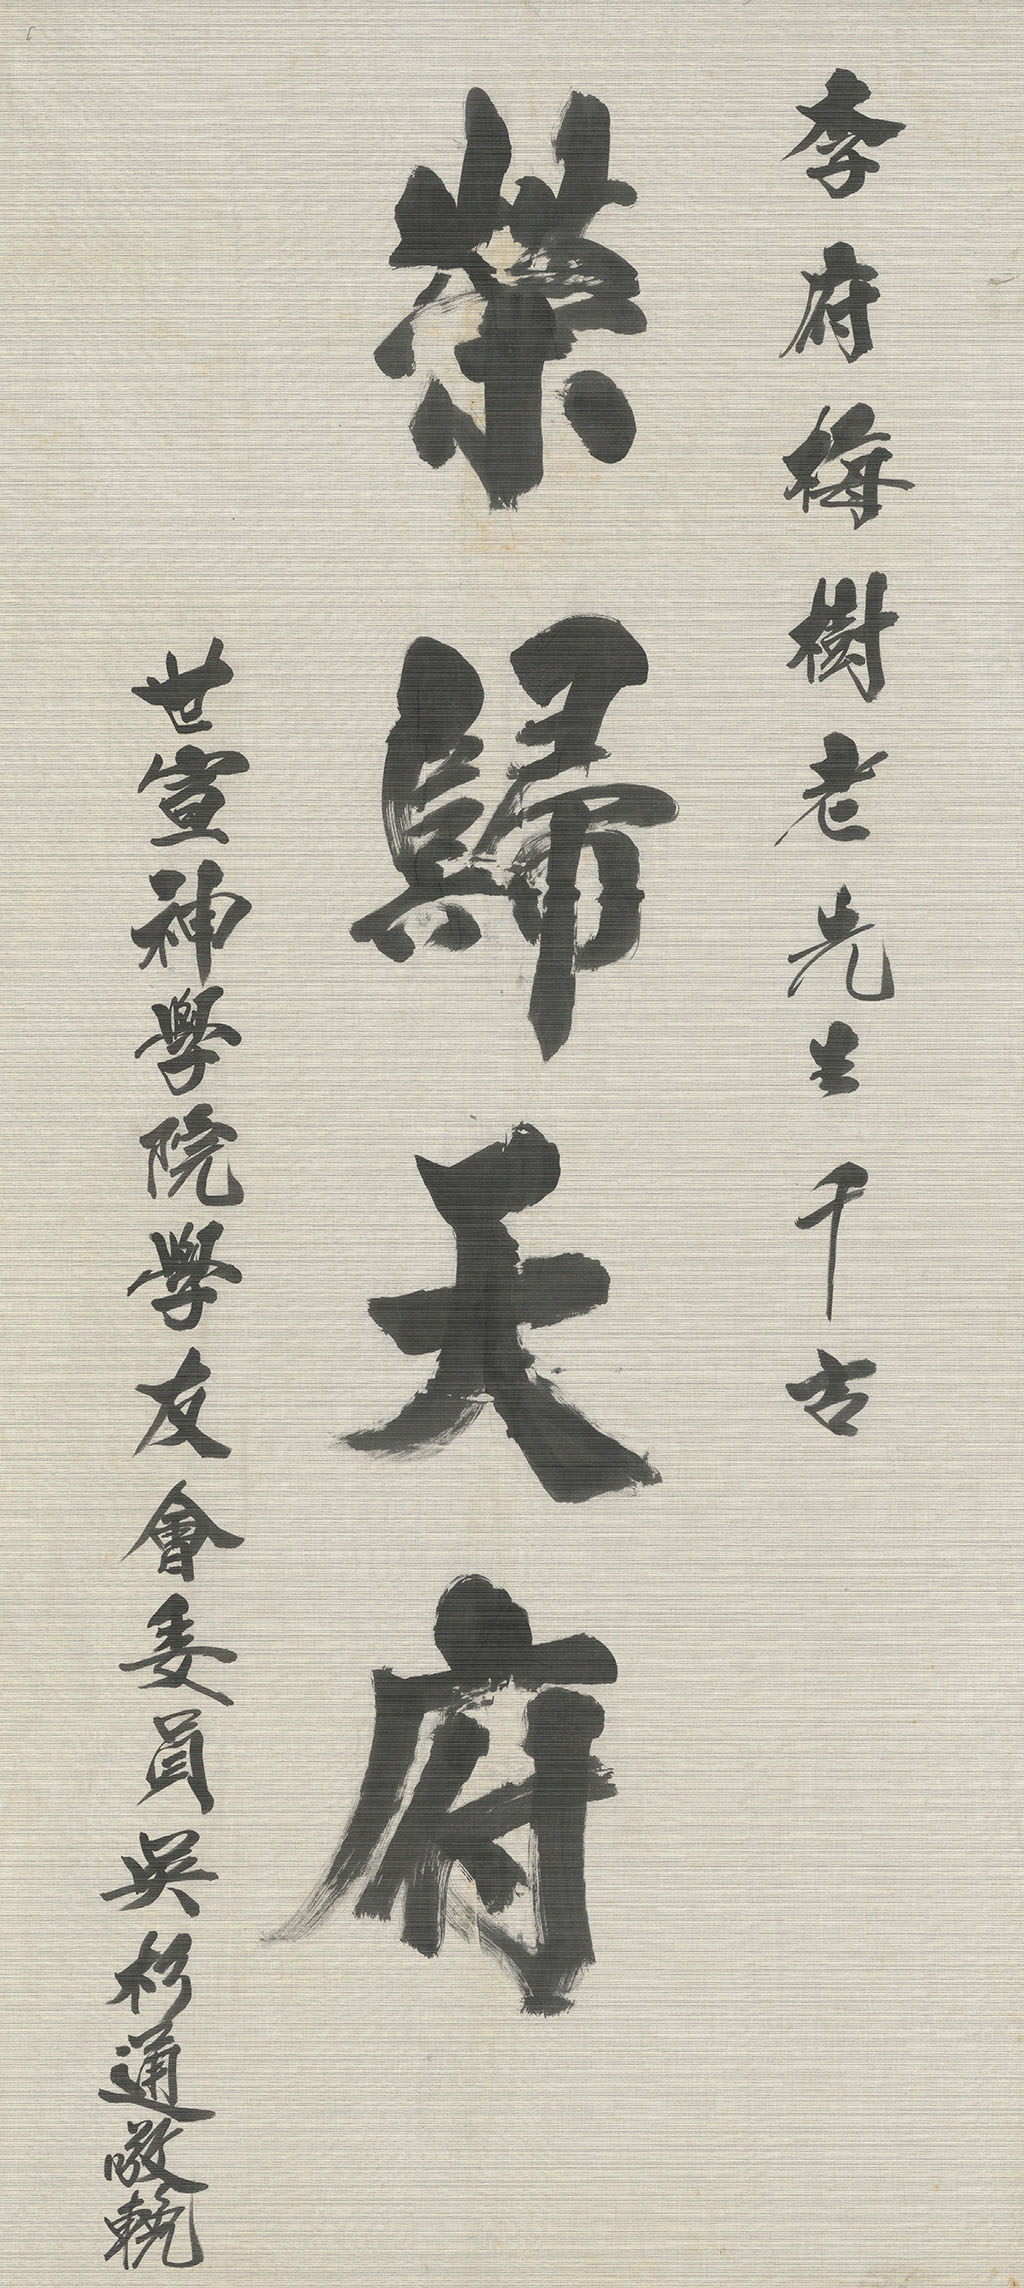 李府梅樹老先生千古
榮歸天府
世宣神學院學友會委員吳杉通敬輓